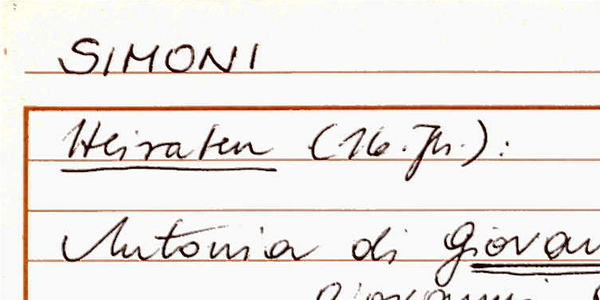 SIMONI
Heiraten (16. Jh.):
Antonia di Giovan